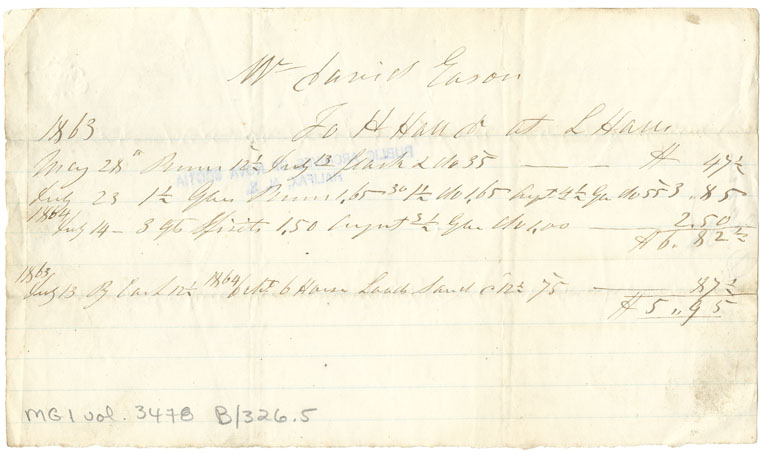 Mr David Eason
1863 To H Hall Dr at L Hall
May 28th Rum 12½ July 13 Cash & do 35 — $ 47½
PUBLIC ARCHIVES OF NOVA SCOTIA
HALIFAX, N. S.
July 23 1½ Gall Rum 1,65 30 1½ do 1,65 Augt 4 ½ Ga do 55 3.85
1864
July 14 - 3 qts Spirits 1.50 August 3 ½ Gall do 1,00 — 2.50
$6.82½
1863
July 13 By Cash 12½ 1864 6 Horse Loads Sand c 12½ 75 — 87½
$5.95
MG1 vol. 3478 B/326.5